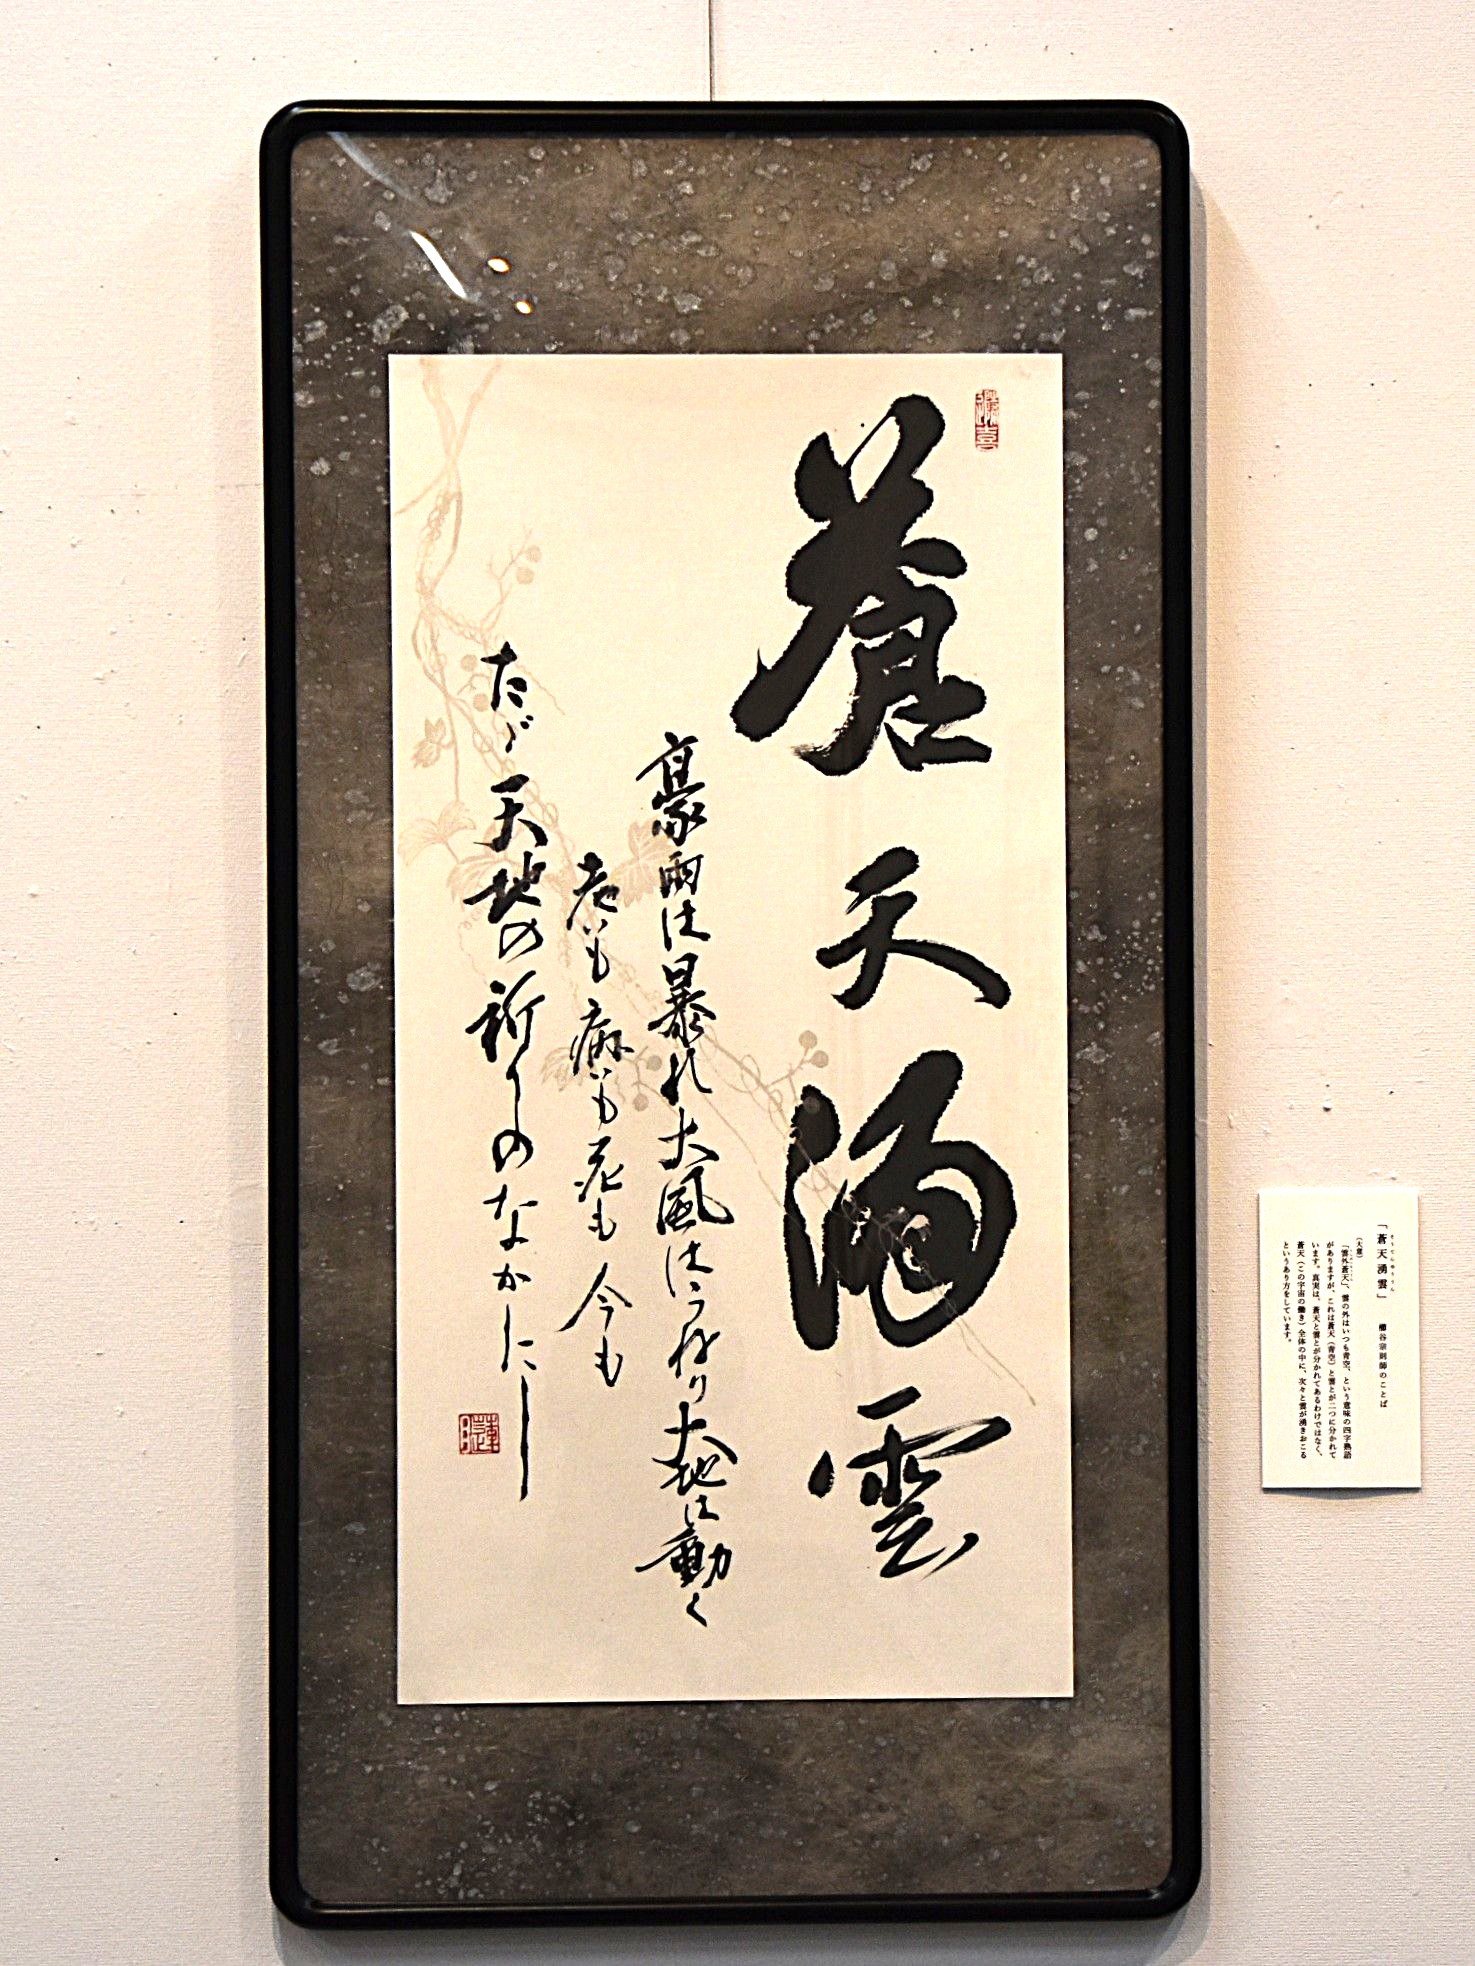 蒼天湧雲
豪雨は暴れ大風はうねり大地は動く
老いも病いも死も今も
たゞ天地の祈りのなかにし
「蒼天湧雲」 櫛谷宗則師のことば
(大意)
「雲外蒼天」、雲の外はいつも青空、という意味の四字熟語
がありますが、これは蒼天(青空)と雲とが二つに分かれて
います。真実は、蒼天と雲とが分かれてあるわけではなく、
蒼天(この宇宙の働き)全体の中に、次々と雲が湧きおこる
というあり方をしています。